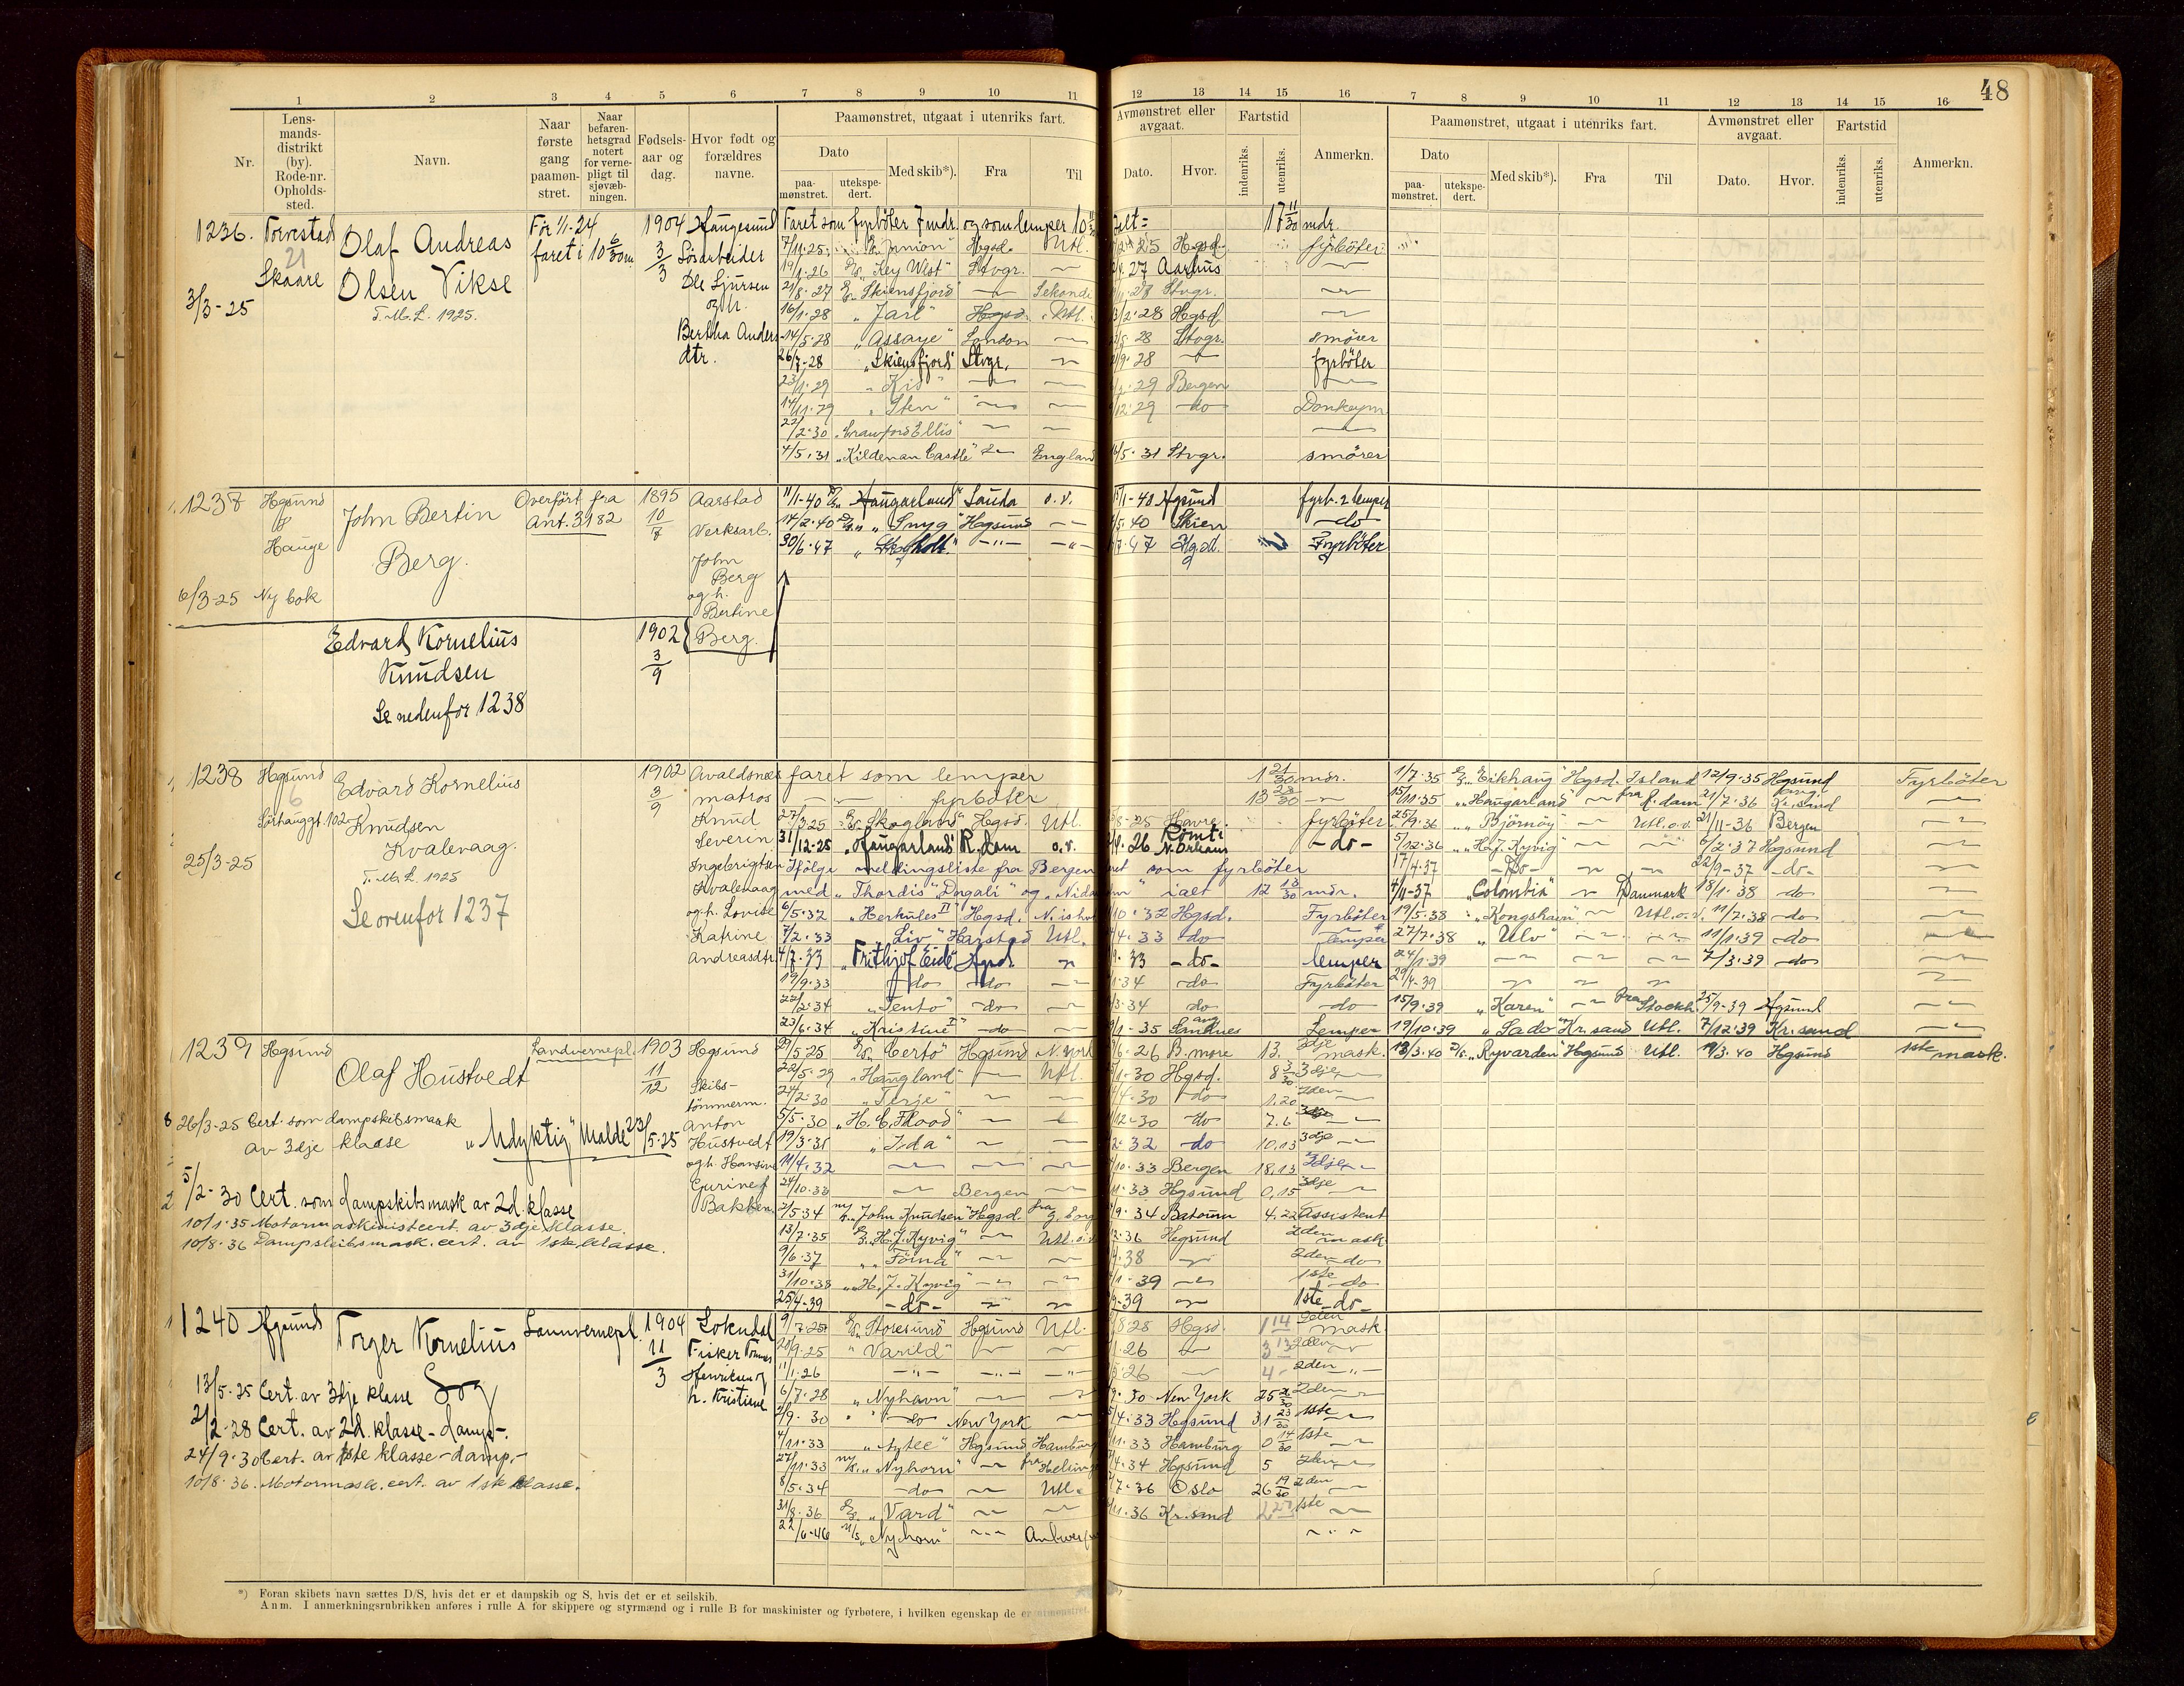 48
1 2 3 4 5 6 7 8 9 10 11 12 13 14 15 16 7 8 9 10 11 12 13 14 15 16
Nr.
Lens-mands-distrikt (by). Rode-nr. Opholds-sted.
Navn.
Naar første gang paamøn-stret.
Naar befaren-hetsgrad notert for verne-pligt til sjøvæb-ningen.
Fødsels-aar og dag.
Hvor født og forældres navne.
Paamønstret, utgaat i utenriks fart.
Dato
paa-mønstret.
utekspe-dert.
Med skib*).
Fra
Til
Avmønstret eller avgaat.
Dato.
Hvor.
Fartstid
indenriks.
utenriks.
Anmerkn.
Paamønstret, utgaat i utenriks fart.
Dato
paa-mønstret.
utekspe-dert.
Med skib*).
Fra
Til
Avmønstret eller avgaat.
Dato.
Hvor.
Fartstid
indenriks.
utenriks.
Anmerkn.
1236. Torvestad
21
Skaare
3/3-25
Olaf Andreas
Olsen Vikse
T.M.L. 1925.
Før 1/1-24
faret i 10 6/30 m
1904
3/3
Haugesund
Sjøarbeider
Ole Sjursen
og h.
Bertha Anders
dtr.
Faret som fyrbøter 7 mdr. og som lemper 10 11/30 ialt = 17 11/30 mdr.
7/11.25 "Junion" Hgsd. Utl. 25 Hgsd. fyrbøter
19/1.26 "Key West" Stvgr. — 27 Aarhus —
21/8.27 "Skiensfjord" — Sekondi 28 Stvgr. —
16/1.28 "Jarl" Hgsd. Utl. 3/2.28 Hgsd. —
14/5.28 "Assaye" London — 28 Stvgr. smører
26/7.28 "Skiensfjord" Stvgr. — 9.28 — fyrbøter
23/1.29 "Kis" — — 29 Bergen —
14/11.29 "Sten" — — 12.29 do Donkeym
22/2.30 "Crawford Ellis" — — —
4/5.31 "Kildenan Castle" — England 5.31 Stvgr. smører
1237 Hgsund
8
Hauge
6/3-25 Ny bok
John Bertin
Berg.
Overført fra
Ant. 3982
1895
10/7
Aarstad
Verksarb.
John
Berg
og h.
Bertine
Berg.
11/1-40 "Haugarland" Sauda o.v. 1-40 Hgsund fyrb. & lemper
14/2.40 "Snyg" Hgsund — 5.40 Skien do
30/6.47 "Skogholt" — — 7.47 Hgsd. Fyrbøter
Edvard Kornelius
Knudsen
Se nedenfor 1238
1902
3/9
1238 Hgsund
6
Sørhauggt. 102
25/3-25
Edvard Kornelius
Knudsen
Kvalevaag.
T.M.L. 1925
Se ovenfor 1237
1902
3/9
Avaldsnes
matros
Knud
Severin
Ingebrigtsen
Kvalevaag
og h. Lovise
Katrine
Andreasdtr.
faret som lemper 1 21/30 mdr.
— — fyrbøter 13 23/30 —
27/3.25 "Skogland" Hgsd. Utl. 25 Havre. fyrbøter
31/12-25 "Haugarland" R.dam o.v. 26 Rømt i N.Orleans do
Ifølge meldingsliste fra Bergen faret som fyrbøter
med "Thordis" "Dagali" og "Nidarn" ialt 12 13/30 mdr.
6/5.32 "Herkules II" Hgsd. N.ishv 10.32 Hgsd. Fyrbøter
7/2.33 "Liv" Harstad Utl. 4.33 do lemper
4/7.33 "Frithjof Eide" Hgsd — 33 do lemper
19/9.33 do do — 34 do Fyrbøter
22/2.34 "Tento" do — 3.34 do do
23/6.34 "Kristine I" do — 1-35 Sandnes Lemper
1/7.35 "Eikhaug" Hgsd. Island 12/9.35 Hgsund Fyrbøter
15/11.35 "Haugarland" — fra R.dam 21/7.36 Kr.sand —
25/9.36 "Bjørnøy" — Utl.o.v. 21/11-36 Bergen —
5/12.36 "H.J. Kyvig" — — 6/2.37 Hgsund —
17/4.37 Do — — 22/9-37 do —
4/11-37 "Colombia" — Danmark 18/1.38 do —
19/5.38 "Kongshavn" — Utl.o.v. 11/7.38 do —
27/7.38 "Ulv" — — 11/1.39 do —
24/1.39 — — — 7/3.39 do —
29/4-39 — — — —
15/9.39 "Karen" — fra Stockh. 25/9-39 Hgsund —
19/10.39 "Lado" Kr.sand Utl. 7/12.39 Kr.sand —
1239 Hgsund
Olaf Hustvedt
Landvernepl.
1903
11/12
Hgsund
Skibs-
tømmerm.
Anton
Hustvedt
og h. Hansine
Gurine f
Bakken
26/3-25 Cert. som dampskibsmask
av 3dje klasse "Udyktig" Molde 23/5-25
5/2-30 Cert. som dampskibsmask av 2d. klasse
10/1.35 Motormaskinistcert. av 3dje klasse.
10/8.36 Dampskibsmask. cert. av 1ste klasse.
29/5.25 "Certo" Hgsund N.York 6.26 B.more 13. 3dje mask.
22/5.29 "Haugland" — Utl. 1.30 Hgsd. 8 3/30 3dje —
24/2.30 "Terje" — — 4.30 do 1.20 2den
5/5.30 "H.C. Flood" — — 12-30 do 7.6 3dje
19/3.31 "Ida" — — 2.32 do 10.13 3dje —
11/4.32 — — — 10.33 Bergen 18.13 3dje —
24/10.33 — Bergen — 11.33 Hgsund 0,15 3dje —
2/5 34 "John Knudsen" Hgsd. fra G.borg 9.34 Batoum 4.22 Assistent
13/7.35 "H.J. Kyvig" — Utl. 2.36 Hgsund 2den mask
9/6.37 "Fôina" — — 4.38 — 2den do
31/10.38 "H.J. Kyvig" — — 1.39 — 1ste do
25/4-39 do — — 9-39 — 1ste do
13/3.40 "Ryvarden" Hgsund Utl. 19/3.40 Hgsund 1ste mask.
1240 Hgsund
Torger Kornelius
Log
Lannvernepl.
1904
11/3
Sokndal
Fisker Tønnes
Henriksen og
h. Kristine
13/5-25 Cert. av 3dje klasse
2/2-28 Cert. av 2d. klasse - damp-.
24/9.30 Cert. av 1ste klasse - damp.-
10/8.36. Motormask. cert. av 1ste klasse.
9/7.25 "Storesund" Hgsund Utl. 8 25 Hgsd. 1 14 2den mask
20/9.25 "Varild" — — 1.26 — 3 13 2den —
11/1.26 — — — 5.26 — 4- 2den —
6/7.28 "Nyhavn" — — 9.30 New York 25 2den
2/9.30 do New York — 4.33 Hgsund 31 23/30 1ste —
4/11.33 "Aylee" Hgsund Hamburg 11.33 Hamburg 0 14/30 1ste —
27/11.33 "Nyhorn" — fra Helsing 4.34 Hgsund 5 2den —
8/5.34 do — Utl. 7.36 Oslo 26 19/30 2den
31/8.36 "Vard" — — 11.36 Kr.sand 2 27 1ste —
22/6-46 "Nyhorn" — Antwerpen —
*) Foran skibets navn sættes D/S, hvis det er et dampskib og S, hvis det er et seilskib.
Anm. I anmerkningsrubrikken anføres i rulle A for skippere og styrmænd og i rulle B for maskinister og fyrbøtere, i hvilken egenskap de er utmønstret.